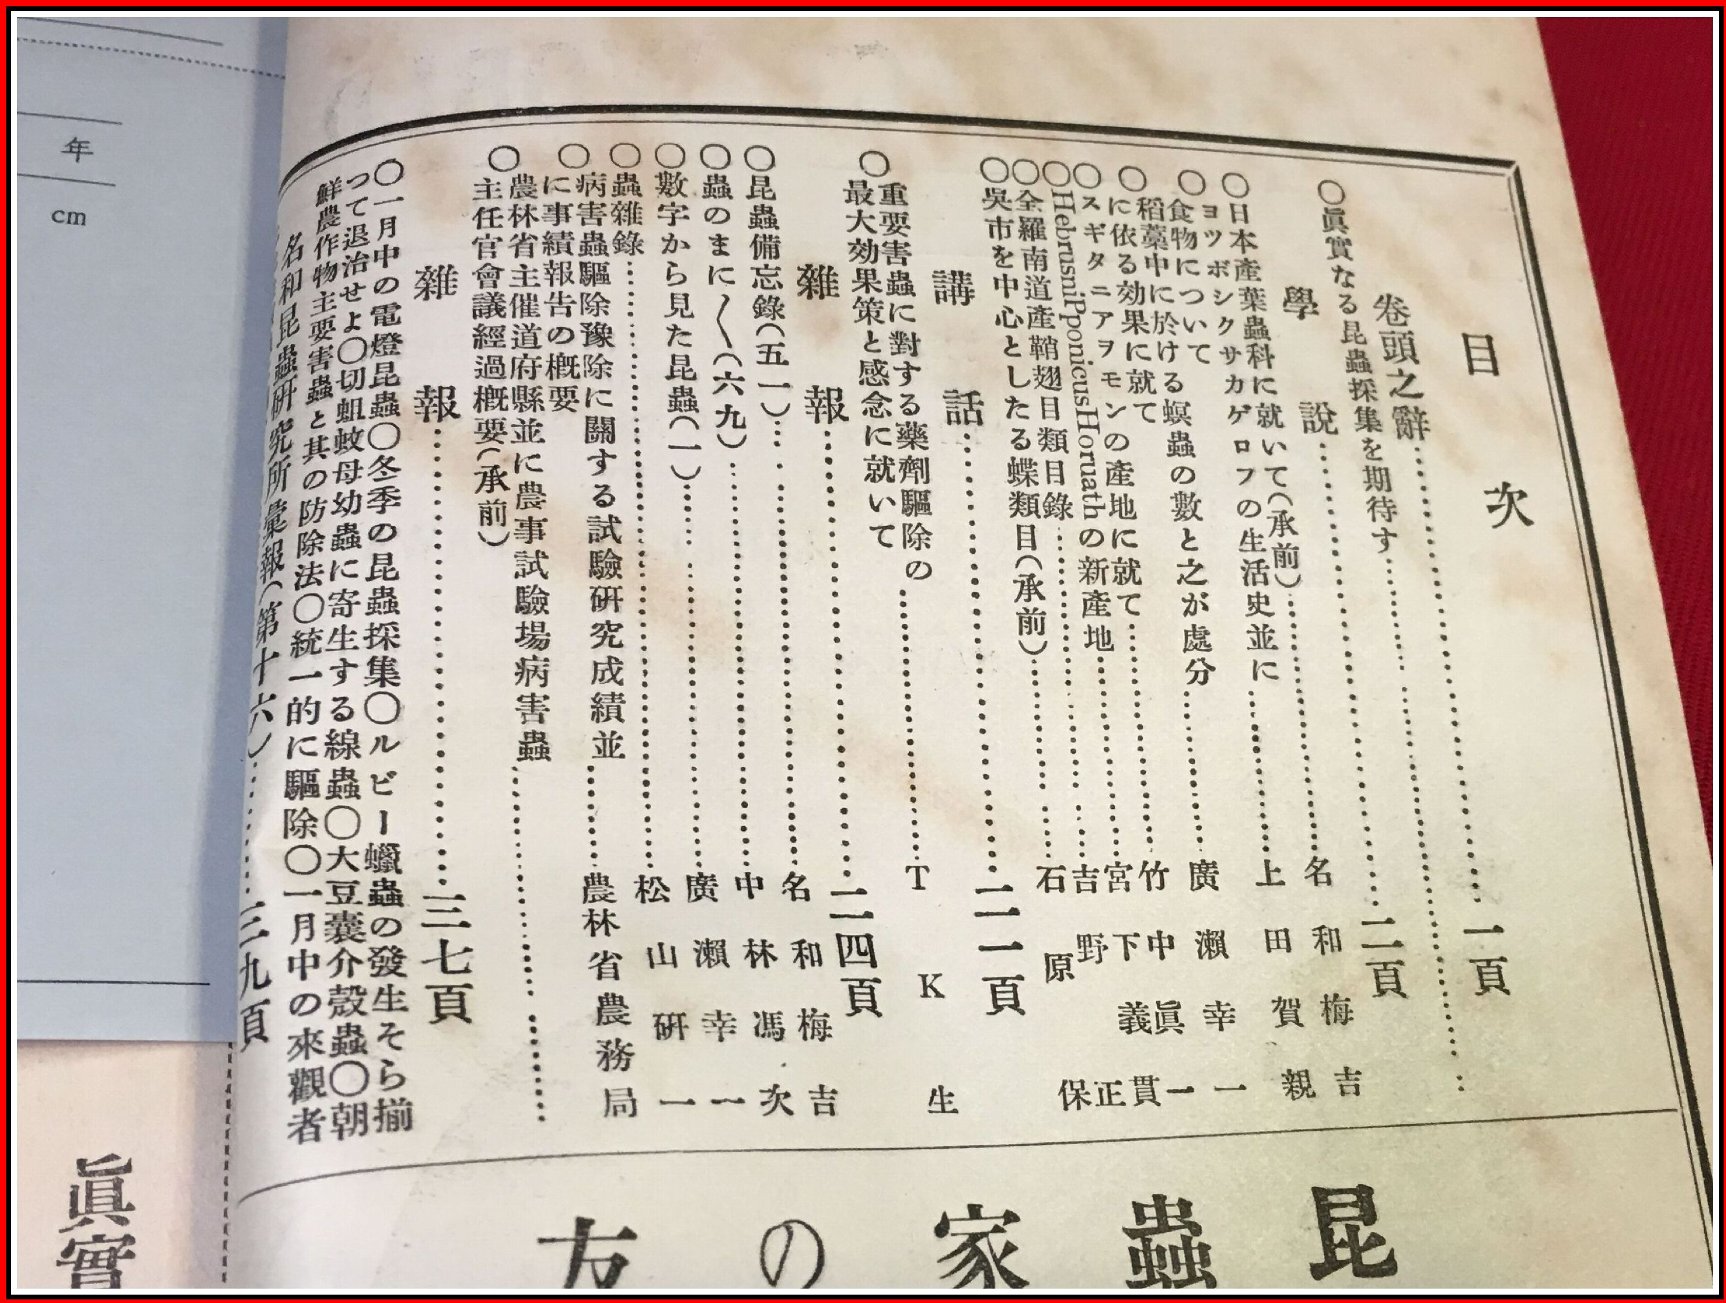 目次
卷頭之辭…………一頁
〇眞實なる昆蟲採集を期待す…………
學說…………二頁
〇日本產葉蟲科に就いて(承前)…………名和梅吉
〇ヨツボシクサカゲロフの生活史並に
食物について…………上田賀親
〇稻藁中に於ける螟蟲の數と之が處分
に依る効果に就て…………廣瀨幸一
〇スギタニアヲモンの產地に就て…………竹中眞一
〇HebrusniPponicusHoruathの新產地…………宮下義貫
〇全羅南道產鞘翅目類目錄…………吉野正
〇吳市を中心としたる蝶類目(承前)…………石原保
講話…………二一頁
〇重要害蟲に對する藥劑驅除の
最大効果策と感念に就いて…………TK生
雜報…………二四頁
〇昆蟲備忘錄(五一)…………名和梅吉
〇蟲のまに〱(六九)…………中林馮次
〇數字から見た昆蟲(一)…………廣瀨幸一
〇蟲雜錄…………松山硏一
〇病害蟲驅除豫除に關する試驗硏究成績並
に事績報告の槪要…………農林省農務局
〇農林省主催道府縣並に農事試驗場病害蟲
主任官會議經過槪要(承前)…………
雜報…………三七頁
〇一月中の電燈昆蟲〇冬季の昆蟲採集〇ルビー蠟蟲の發生そら揃
つて退治せよ〇切蛆蚊母幼蟲に寄生する線蟲〇大豆囊介殼蟲〇朝
鮮農作物主要害蟲と其の防除法〇統一的に驅除〇一月中の來觀者
名和昆蟲硏究所彙報(第十六)…………三九頁
昆蟲家の方
年
cm
眞實